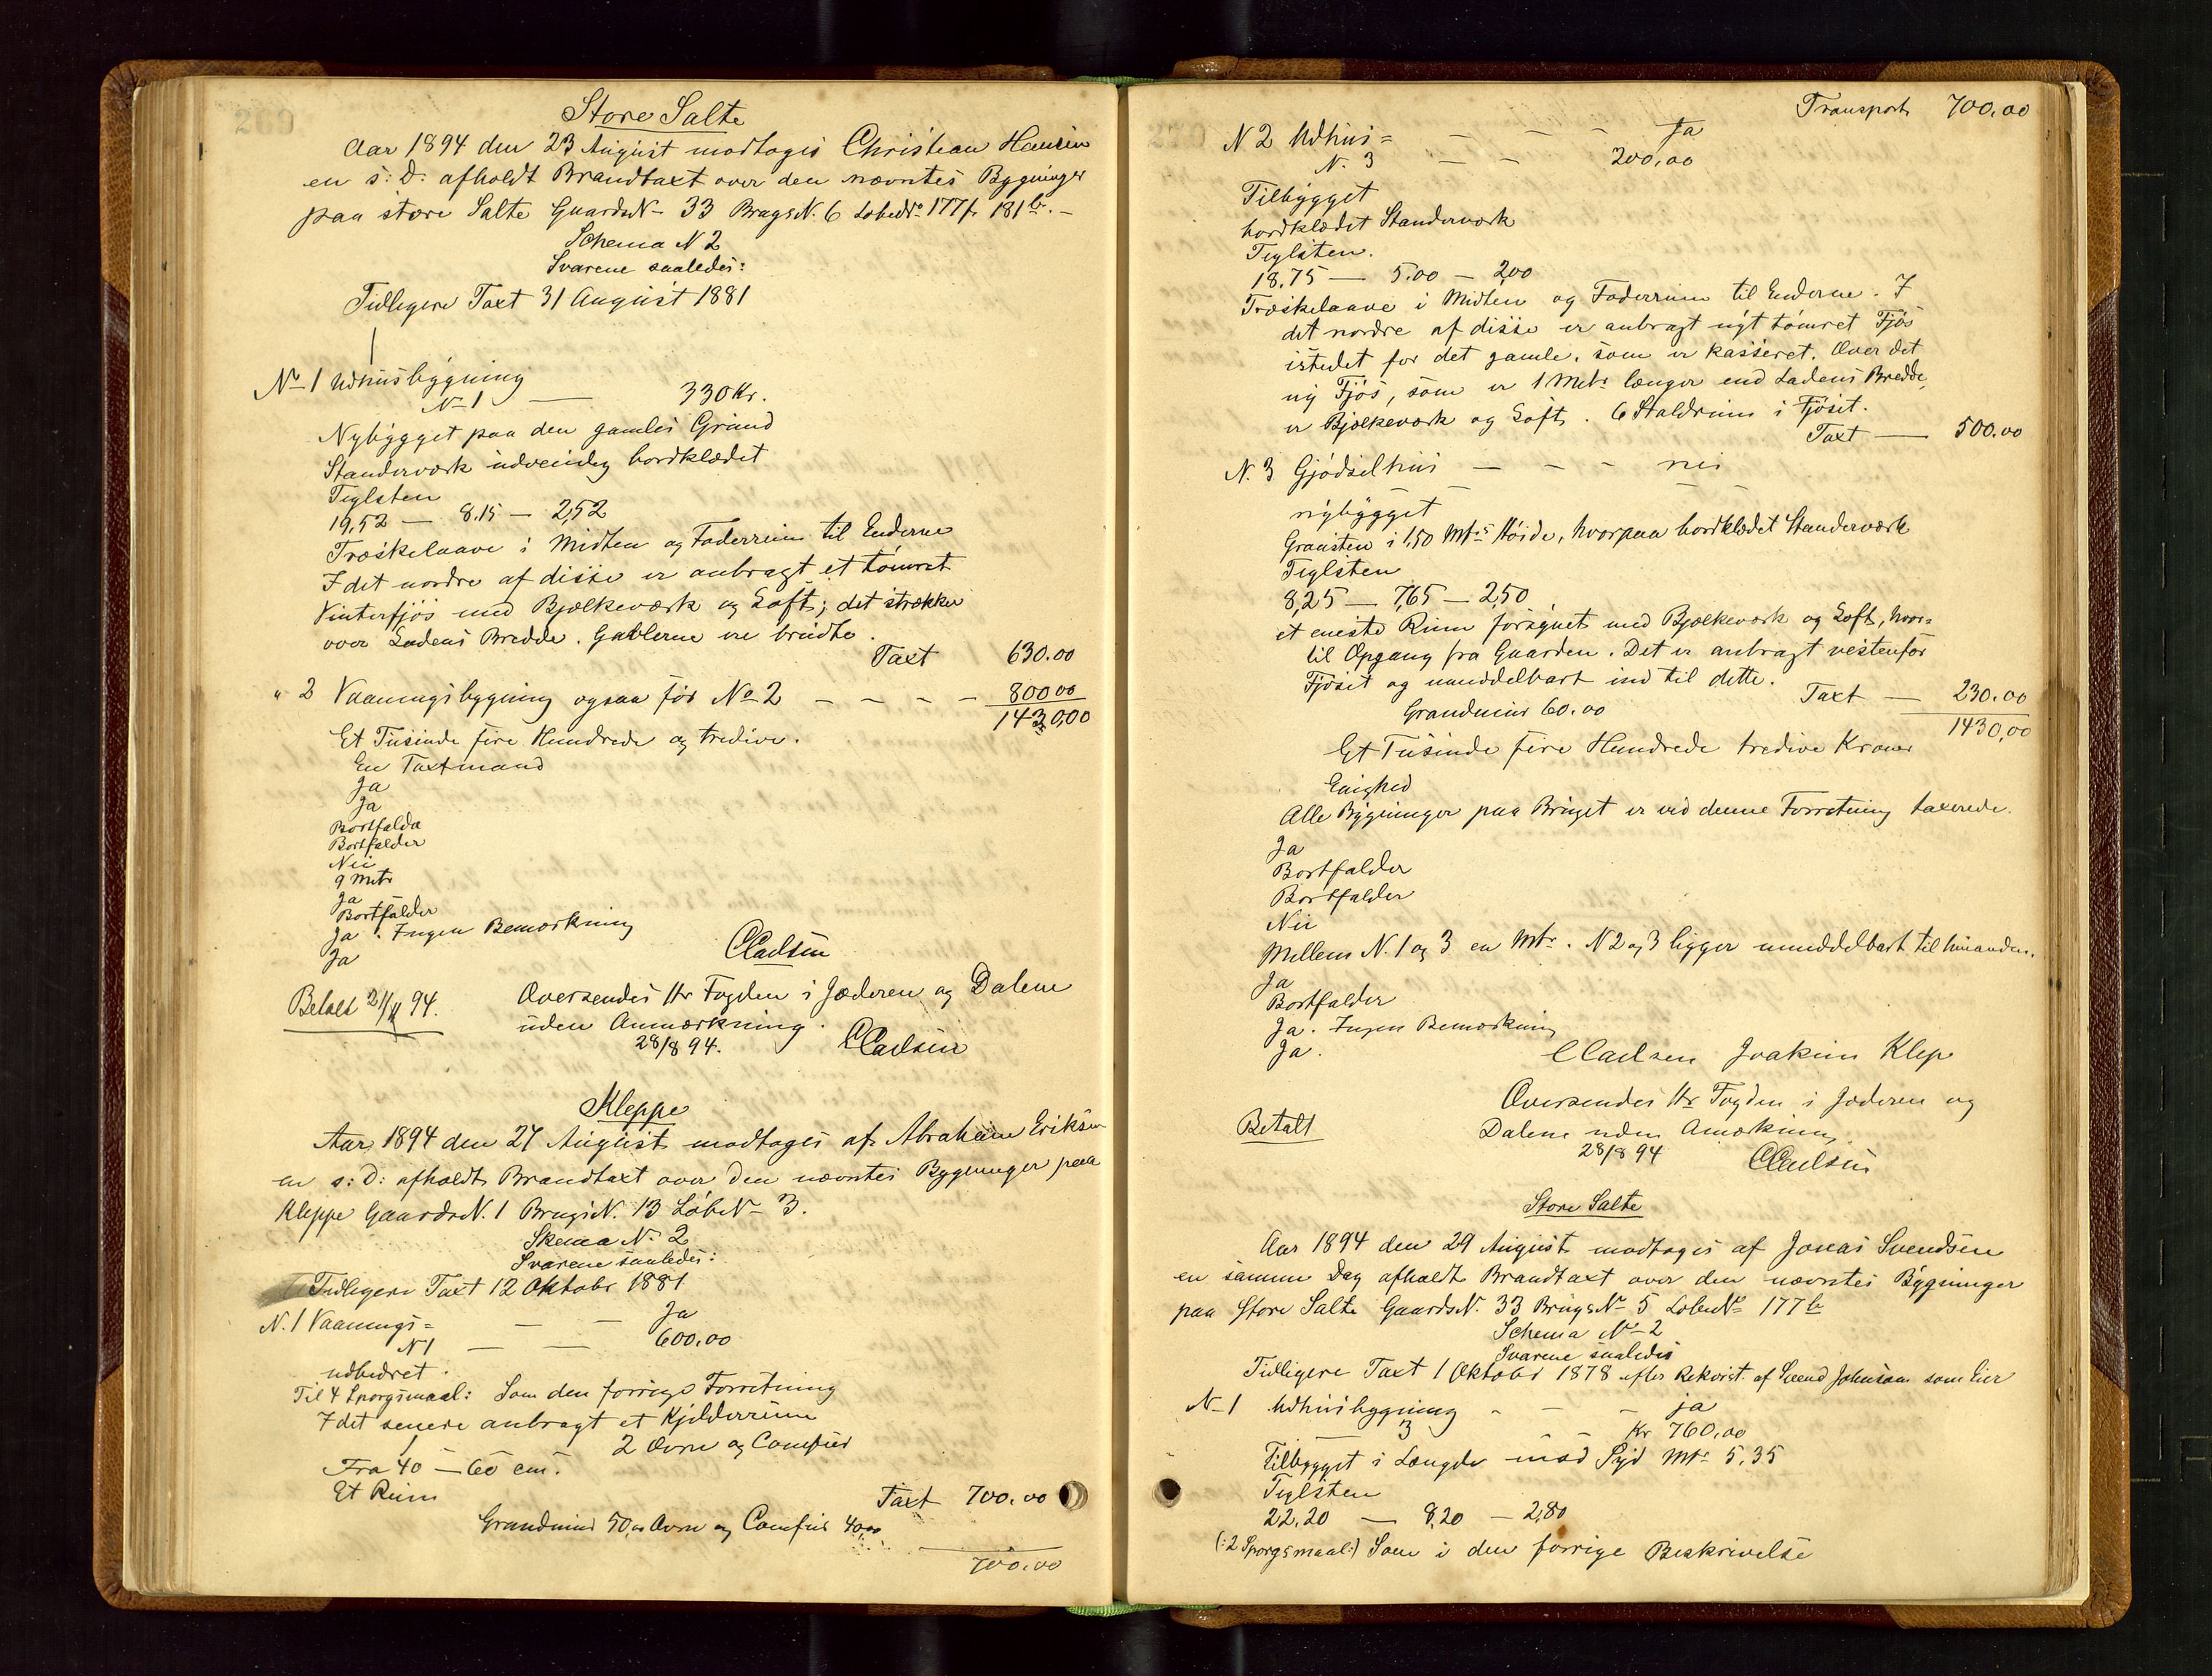 Store Salte
Aar 1894 den 23 August modtoges Christian Hansen
en s: D: afholdt Brandtaxt over den nævntes Bygninger
paa store Salte GaardsNo 33 BrugsN. 6 LøbeNo 177f 181b. –
Schema N 2
Svarene saaledes:
Tidligere Taxt 31 August 1881
No 1 Udhusbygning
No 1 — 330 Kr.
Nybygget paa den gamles Grund
Standerværk udvendig bordklædet
Teglsten
19,52 — 8.15 — 2,52
Træskelaave i Midten og Foderrum til Enderne
I det nordre af disse er anbragt et tómret
Vinterfjós med Bjælkeværk og Loft; det strækker
over Ladens Bredde. Gavlerne ere brudte.
Taxt 630.00
" 2 Vaaningsbygning ogsaa før No 2 – – – – 800 00
1430,00
Et Tusinde fire Hundrede og tredive.
En Taxtmand
Ja
Ja
Bortfalde
Bortfalder
Nei
9 Mtr
Ja
Bortfalder
Ja. Ingen Bemærkning
Ja
CCarlsen
Betalt 21/11 94.
Oversendes Hr Fogden i Jæderen og Dalene
uden Anmærkning.
28/8 94. CCarlsen
Kleppe
Aar 1894 den 27 August modtoges af Abraham Eriksen
en s: D: afholdt Brandtaxt over den nævntes Bygninger paa
Kleppe GaardsN. 1 BrugsN. 13 LøbN 3.
Skema N. 2
Svarene saaledes:
Tidligere Taxt 12 Oktober 1881
N. 1 Vaanings= — — Ja
N 1 — — 600.00
udbedret.
Til 4 Sporgsmaal: Som den forrige Forretning
I det senere anbragt et Kjelderrum
2 Ovne og Comfur
Fra 40 — 60 cm.
Et Rum
Taxt 700.00
Grundmur 50,00 Ovne og Comfur 40,00
700.00
Transport 700,00
N 2 Udhus= – – – Ja
N. 3 – – 200,00
Tilbygget
bordklædet Standerværk
Teglsten.
18,75 — 5.00 — 2,00
Træskelaave i Midten og Foderrum til Enderne. I
det nordre af disse er anbragt nyt tómret Fjós
istedet for det gamle, som er kasseret. Over det
ny Fjós, som er 1 Mtr længer end Ladens Bredde,
er Bjælkeværk og Loft. 6 Staldrum i Fjóset.
Taxt — 500.00
N. 3 Gjódselhus — – – nei
nybygget — — —
Graasten i 1,50 Mtrs Hóide, hvorpaa bordklædet Standerværk
Teglsten
8,25 — 7,65 — 2,50
et eneste Rum forsynet med Bjælkeværk og Loft, hvor=
til Opgang fra Gaarden. Det er anbragt vestenfor
Fjóset og umiddelbart ind til dette.
Taxt — 230.00
Grundmur 60.00
1430,00
Et Tusinde fire Hundrede tredive Kroner
Enighed
Alle Bygninger paa Bruget er ved denne Forretning taxerede.
Ja
Bortfalder
Bortfalder
Nei
Mellem N. 1 og 3 en Mtr. N 2 og 3 ligger umiddelbart til hinanden.
Ja
Bortfalder
Ja. Ingen Bemærkning
Ja.
CCarlsen Joakim Klep
Oversendes Hr Fogden i Jæderen og
Dalene uden Anmærkning
28/8 94 CCarlsen
Betalt
Store Salte
Aar 1894 den 29 August modtoges af Jonas Svendsen
en samme Dag afholdt Brandtaxt over den nævntes Bygninger
paa Store Salte GaardsN. 33 BrugsNo 5 LøbeNo 177b
Schema No 2
Svarene saaledes
Tidligere Taxt 1 Oktober 1878 efter Rekvist. af Svend Johnson som Eier
N 1 Udhusbygning – – – ja
3 Kr 760,00
Tilbygget i Længde mod Syd Mtr 5,35
Teglsten
22.20 — 8,20 — 2,80
(:2 Sporgsmaal:) Som i den forrige Beskrivelse